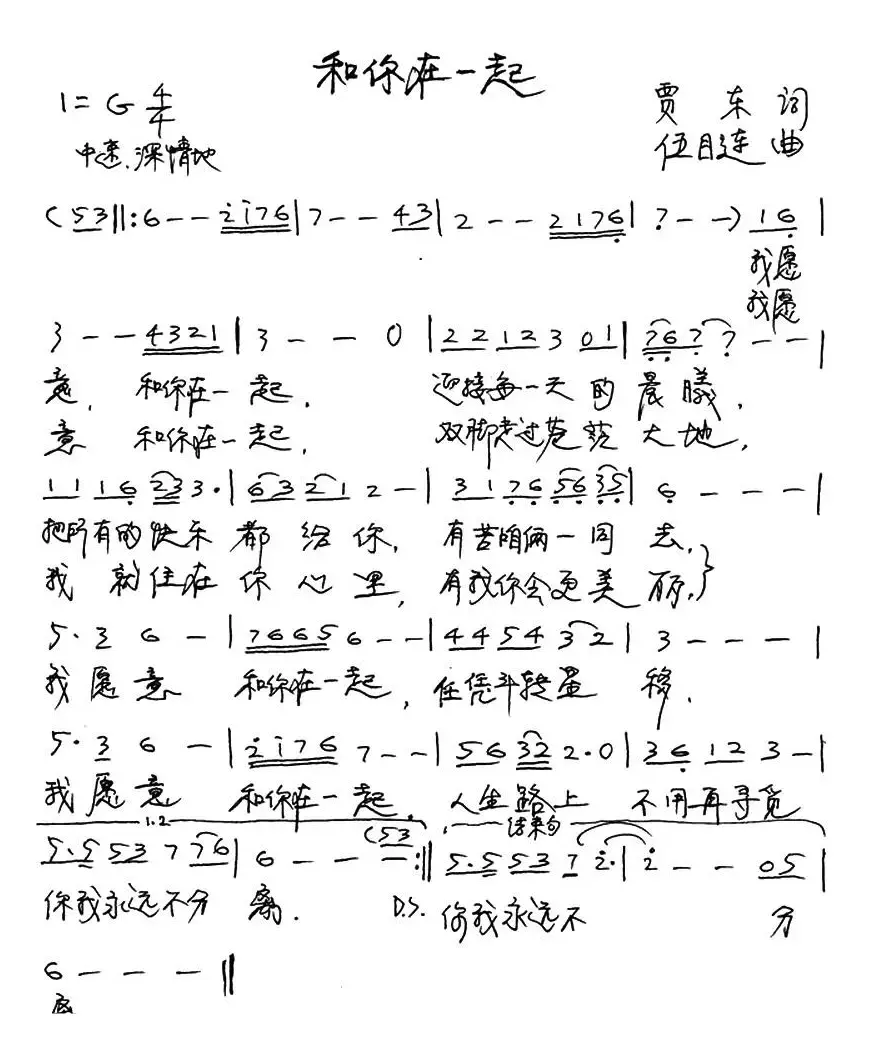 和你在一起
1=G 4/4
贾东词
中速.深情地
伍目连曲
(53‖:6--2176|7--43|2--2176|7--)16|
我愿
我愿
3--4321|3--0|2212301|767--|
意,和你在一起,迎接每一天的晨曦,
意 和你在一起,双脚走过苍茫大地,
1116233·|63212-|31765635|6---|
把所有的快乐都给你,有苦咱俩一同去,
我就住在你心里,有我你会更美丽,}
5·36-|76656--|445432|3---|
我愿意 和你在一起,任凭斗转星移.
5·36-|21767--|56322·0|36123-|
我愿意 和你在一起,人生路上 不用再寻觅
1.2 结束句
5·553776|6--(53:‖5·55372·|2--05|
你我永远不分离. D.S. 你我永远不分
6---‖
离